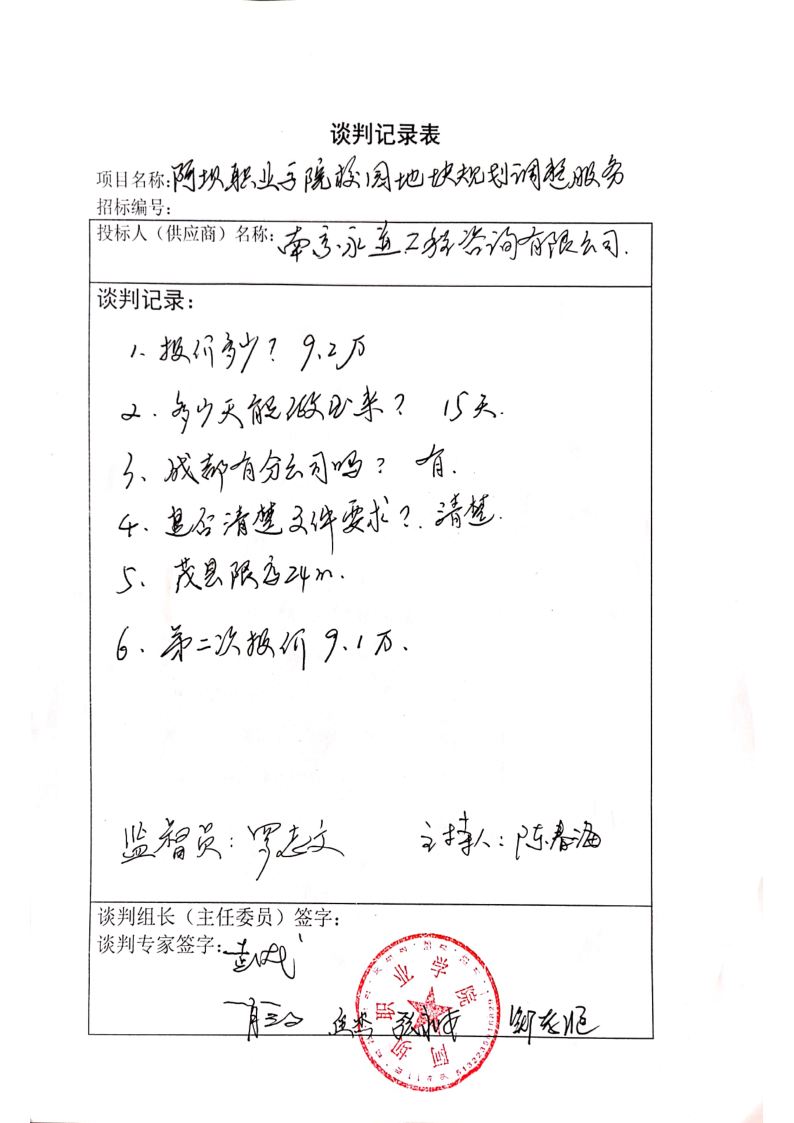 谈判记录表
项目名称:阿坝职业学院校园地块规划调整服务
招标编号:
投标人（供应商）名称:南京永道工程咨询有限公司.
谈判记录:
1、报价多少? 9.2万
2、多少天能做出来? 15天.
3、成都有分公司吗? 有.
4、是否清楚文件要求? 清楚.
5、茂县限高24m.
6、第二次报价9.1万.
监督员:罗志文 主持人:陈春海
谈判组长（主任委员）签字:
谈判专家签字:
阿坝职业学院